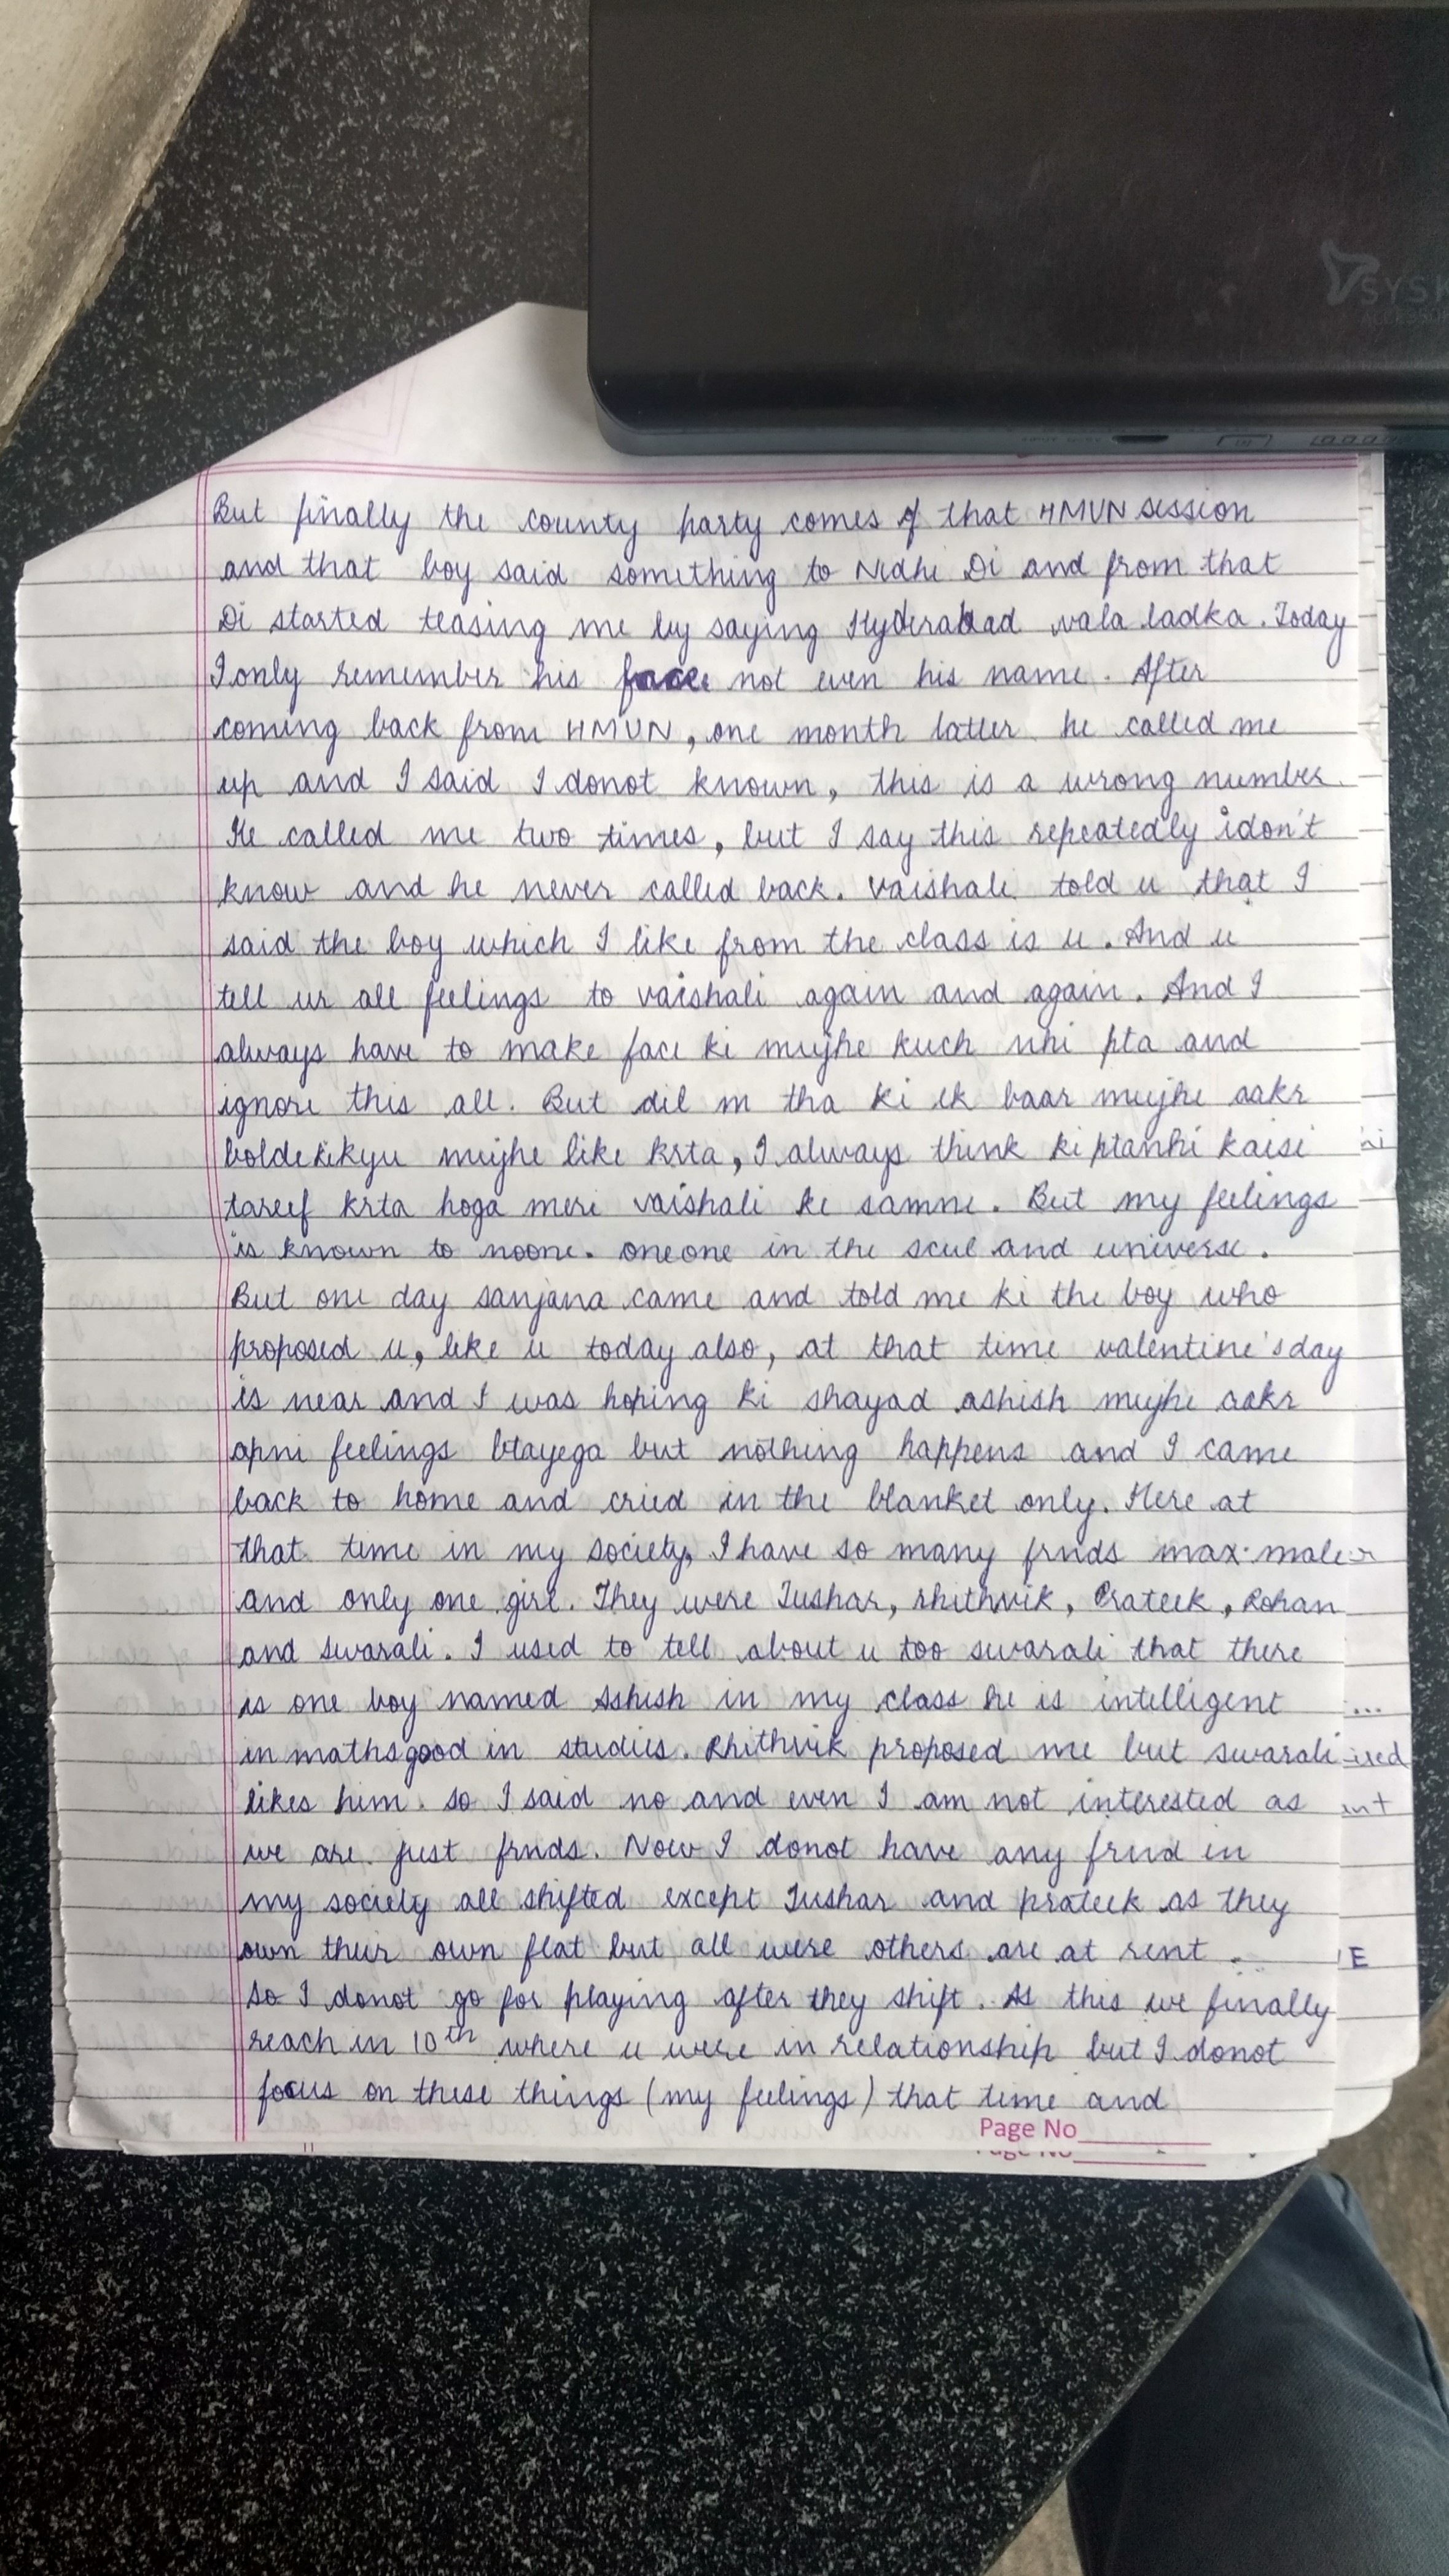 SYSK
ACCESSO
But finally the county party comes of that HMUN session
and that boy said something to Nidhi Di and from that
Di started teasing me by saying Hyderabad vala ladka. Today
I only remember his face not even his name. After
coming back from HMUN, one month latter he called me
up and I said I donot known, this is a wrong number.
He called me two times, but I say this repeatedly idon't
know and he never called back. Vaishali told u that I
said the boy which I like from the class is u. And u
tell ur all feelings to vaishali again and again. And I
always have to make face ki mujhe kuch nhi pta and
ignore this all. But dil m tha ki ek baar mujhe aakr
bolde kikyu mujhe like krta, I always think ki ptanhi kaisi
tareef krta hoga meri vaishali ke samne. But my feelings
is known to noone. oneone in the scul and universe.
But one day sanjana came and told me ki the boy who
proposed u, like u today also, at that time valentine's day
is near and I was hoping ki shayad ashish mujhe aakr
apni feelings btayega but nothing happens and I came
back to home and cried in the blanket only. Here at
that time in my society, I have so many frnds max. male
and only one girl. They were Tushar, rhithvik, Prateek, Rohan
and swarali. I used to tell about u too swarali that there
is one boy named Ashish in my class he is intelligent
in maths good in studies. Rhithvik proposed me but swarali
likes him. so I said no and even I am not interested as
we are just frnds. Now I donot have any frnd in
my society all shifted except Tushar and prateek as they
own their own flat but all were others are at rent.
E
So I donot go for playing after they shift. As this we finally
reach in 10th where u were in relationship but I donot
focus on these things (my feelings) that time and
Page No
Page No